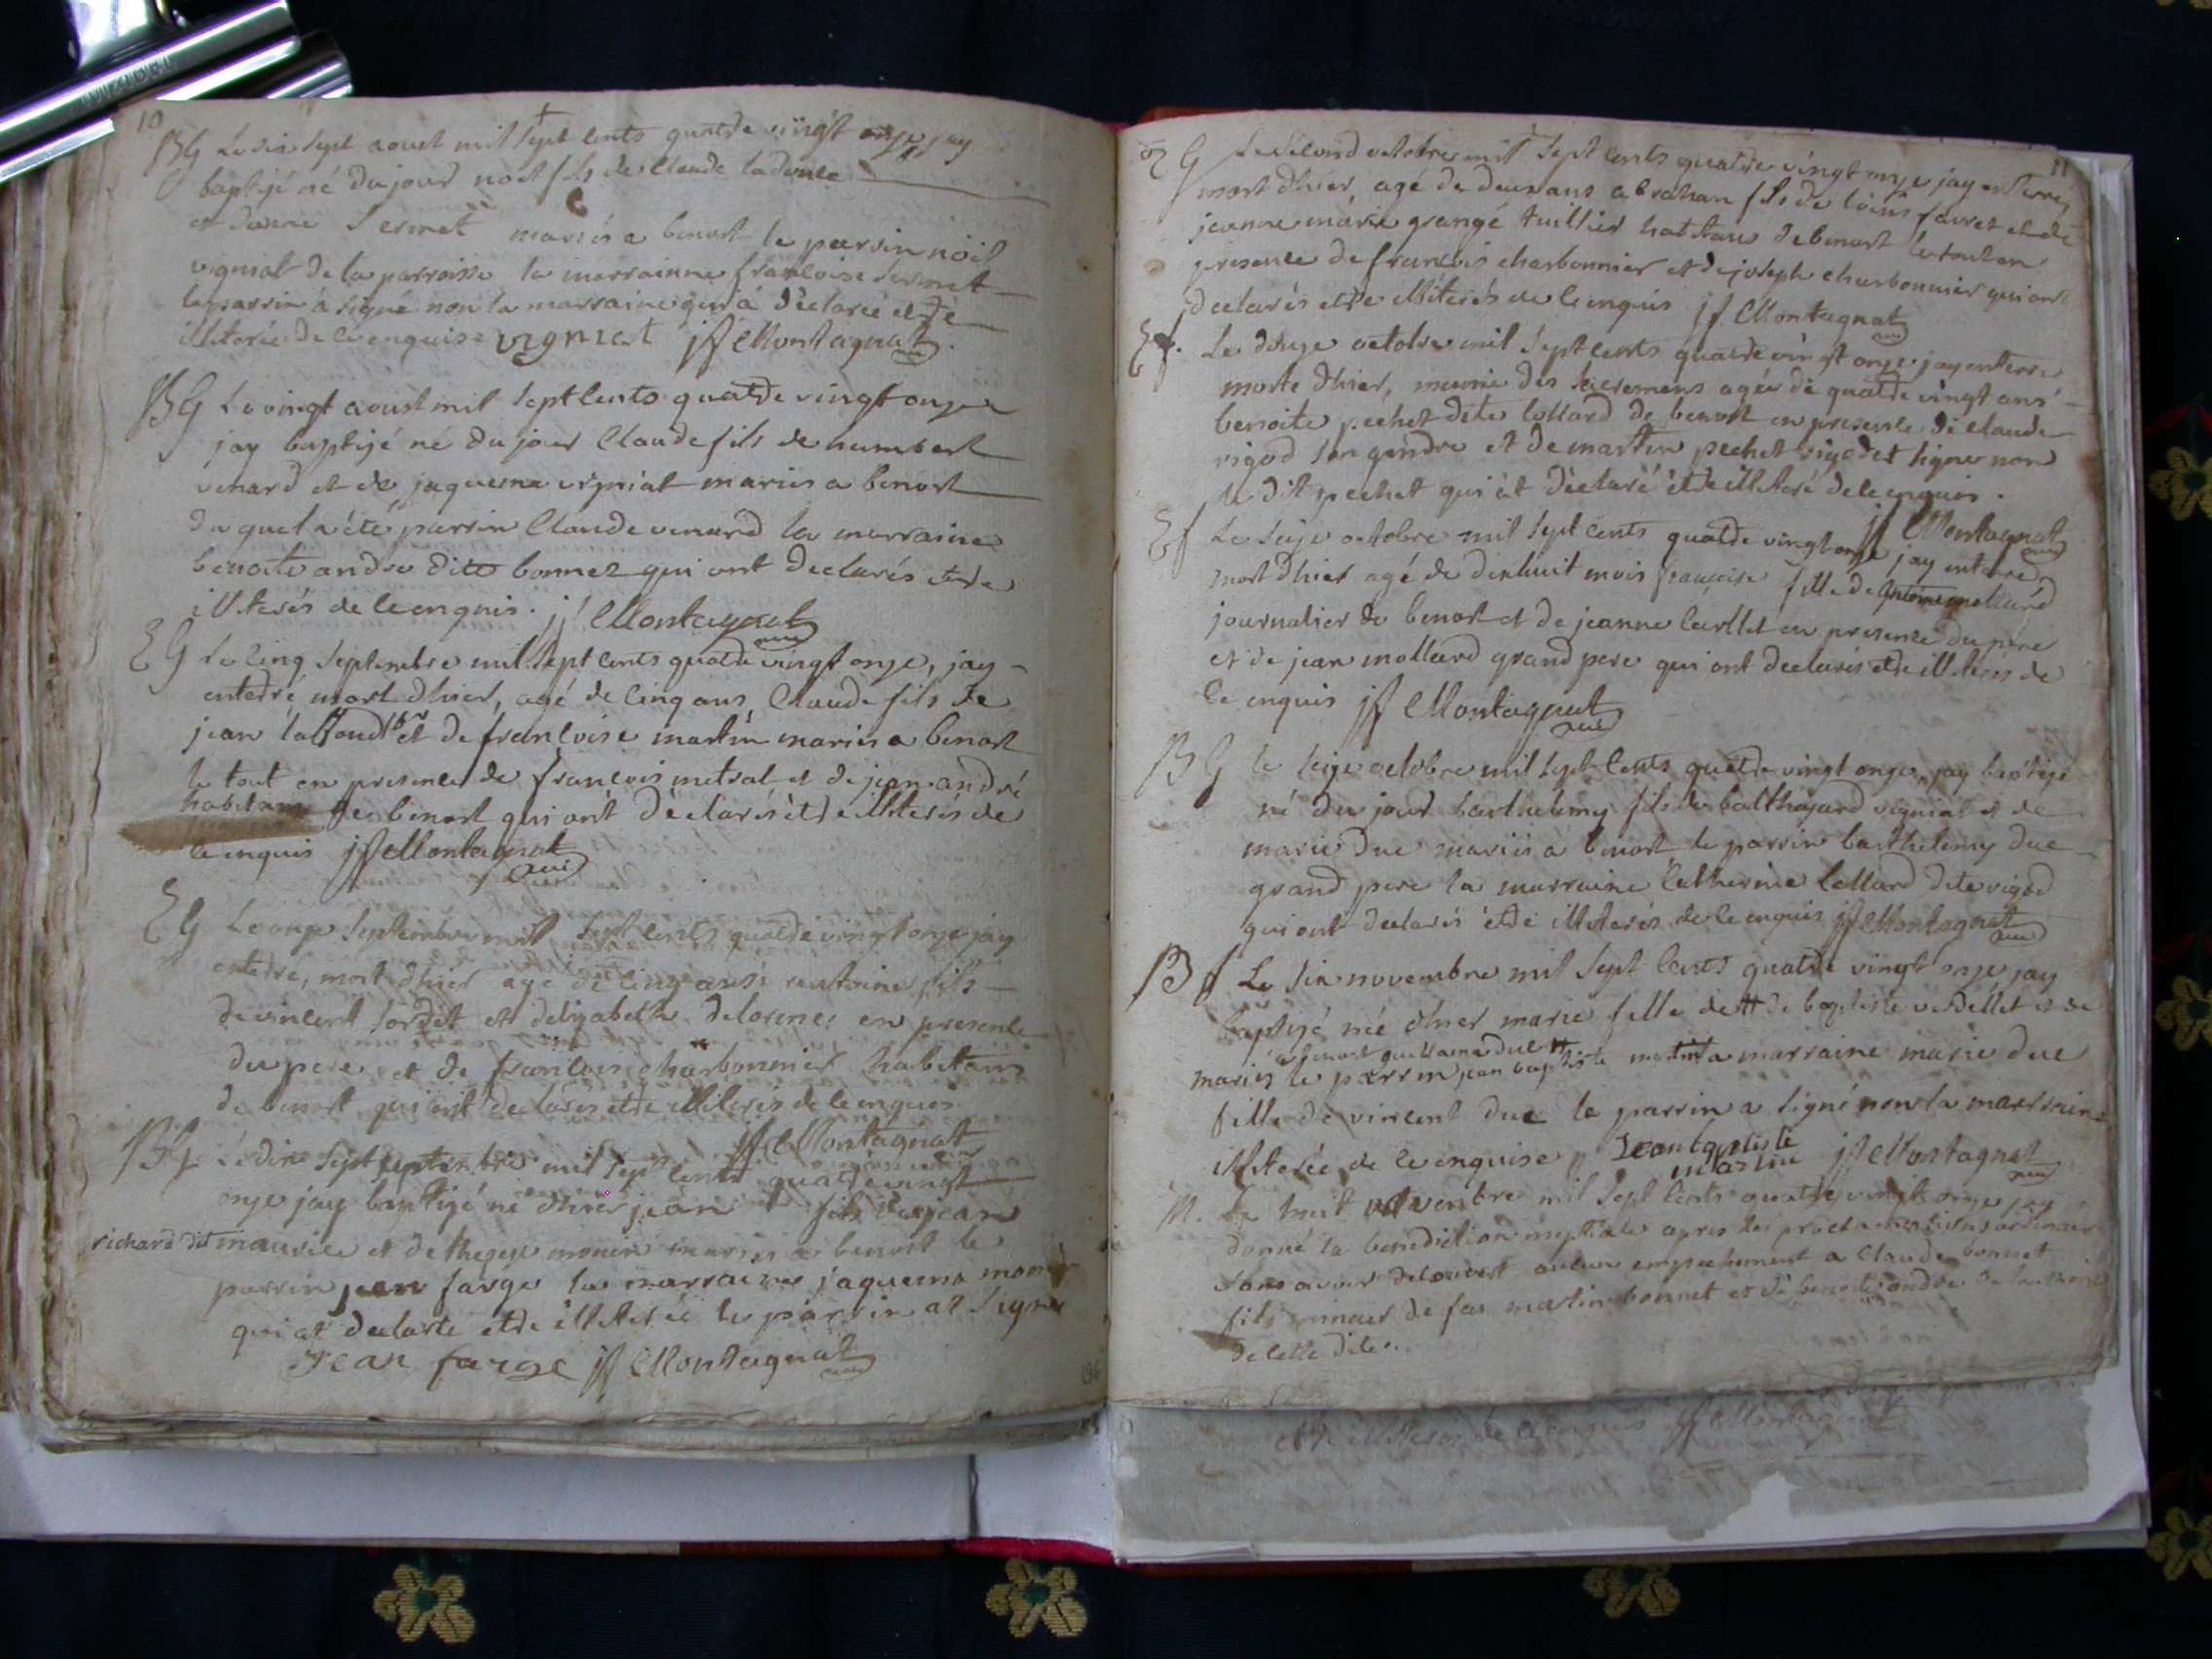 10
BG Le dix sept aoust mil sept cents quatre vingt onze jay
baptizé né du jour noel fils de Claude ladouce
et danne Sermet mariés a benost le parrin noel
vigniat de la parroisse la marrainne francoise Sermet
le parrin a signé non la marraine qui a déclaré etre
illiterée de ce enquise vigniat jf Montagnat
BG Le vingt aoust mil sept cents quatre vingt onze
jay baptizé né du jour Claude fils de humbert
venard et de jaquema vigniat mariés a benost
du quel a été parrin Claude venard la marraine
benoite andre dite bonnez qui ont declarés etre
illiterés de ce enquis. jf Montagnat
EG Le cinq Septembre mil sept cents quatre vingt onze, jay
enterré mort dhier, agé de cinq ans, Claude fils de
jean et de francoise martin mariés a benost
le tout en presence de francois metral et de jean andré
habitans de benost qui ont déclarés étre illiterés de
ce enquis jf Montagnat
EG Le onze Septembre mil sept cents quatre vingt onze jay
enterré, mort dhier agé de cinq ans antoine fils
de vincent sordet et delizabeth delorme en presence
du pere et de francois charbonnier habitans
de benost qui ont declarés etre illiterés de ce enquis
jf Montagnat
BG Le dix sept septembre mil sept cents quatre vingt
onze jay baptizé né dhier jean fils de jean
richard dit maurice et de therese monin mariés a benost le
parrin jean farge la marraine jaquema monin
qui at declarée etre illiterée le parrin at signé
Jean farge jf Montagnat
11
EG Le second octobre mil sept cents quatre vingt onze jay enterré,
mort dhier, agé de deux ans abraham fils de louis favret et de
jeanne marie grangé tuillier habitans de benost le tout en
presence de francois charbonnier et de joseph charbonnier qui ont
declarés etre illiterés de ce enquis jf Montagnat
Ef. Le douze octobre mil sept cents quatre vingt onze jay enterré
morte dhier, munie des sacremens agée de quatre vingt ans
benoite pechet dite collard de benost en presence de claude
rigod son gendre et de martin pechet rigod et signe non
le dit pechet qui at déclaré étre illiteré de ce enquis.
jf Montagnat
Ef Le seize octobre mil sept cents quatre vingt onze jay enterré,
mort dhier agé de dixhuit mois francoise fille de mollard
journalier de benost et de jeanne en presence du pere
et de jean mollard grand pere qui ont declarés etre illiterés de
ce enquis jf Montagnat
BG le seize octobre mil sept cents quatre vingt onze, jay baptizé
né du jour barthelemy fils de balthazard vigniat et de
marie duc mariés a benost le parrin barthelemy duc
grand pere la marraine Catherine Collard dite rigod
qui ont declarés étre illiterés de ce enquis jf Montagnat
Bf Le six novembre mil sept cents quatre vingt onze jay
baptizé née dhier marie fille de de baptiste verdellet et de
a benost guillerma duc
mariés le parrin jean baptiste martin la marraine marie duc
fille de vincent duc le parrin a signé non la marraine
illiterée de ce enquise Jean baptiste
martin jf Montagnat
M. Le huit novembre mil sept cents quatre vingt onze jay
donné la benediction nuptiale apres les proclamations ordinaires
sans avoir decouvert aucun empechement a Claude bonnet
fils mineur de feu martin bonnet et de benoite andre de la
de cette dite
etre illiterés de ce enquis jf Montagnat